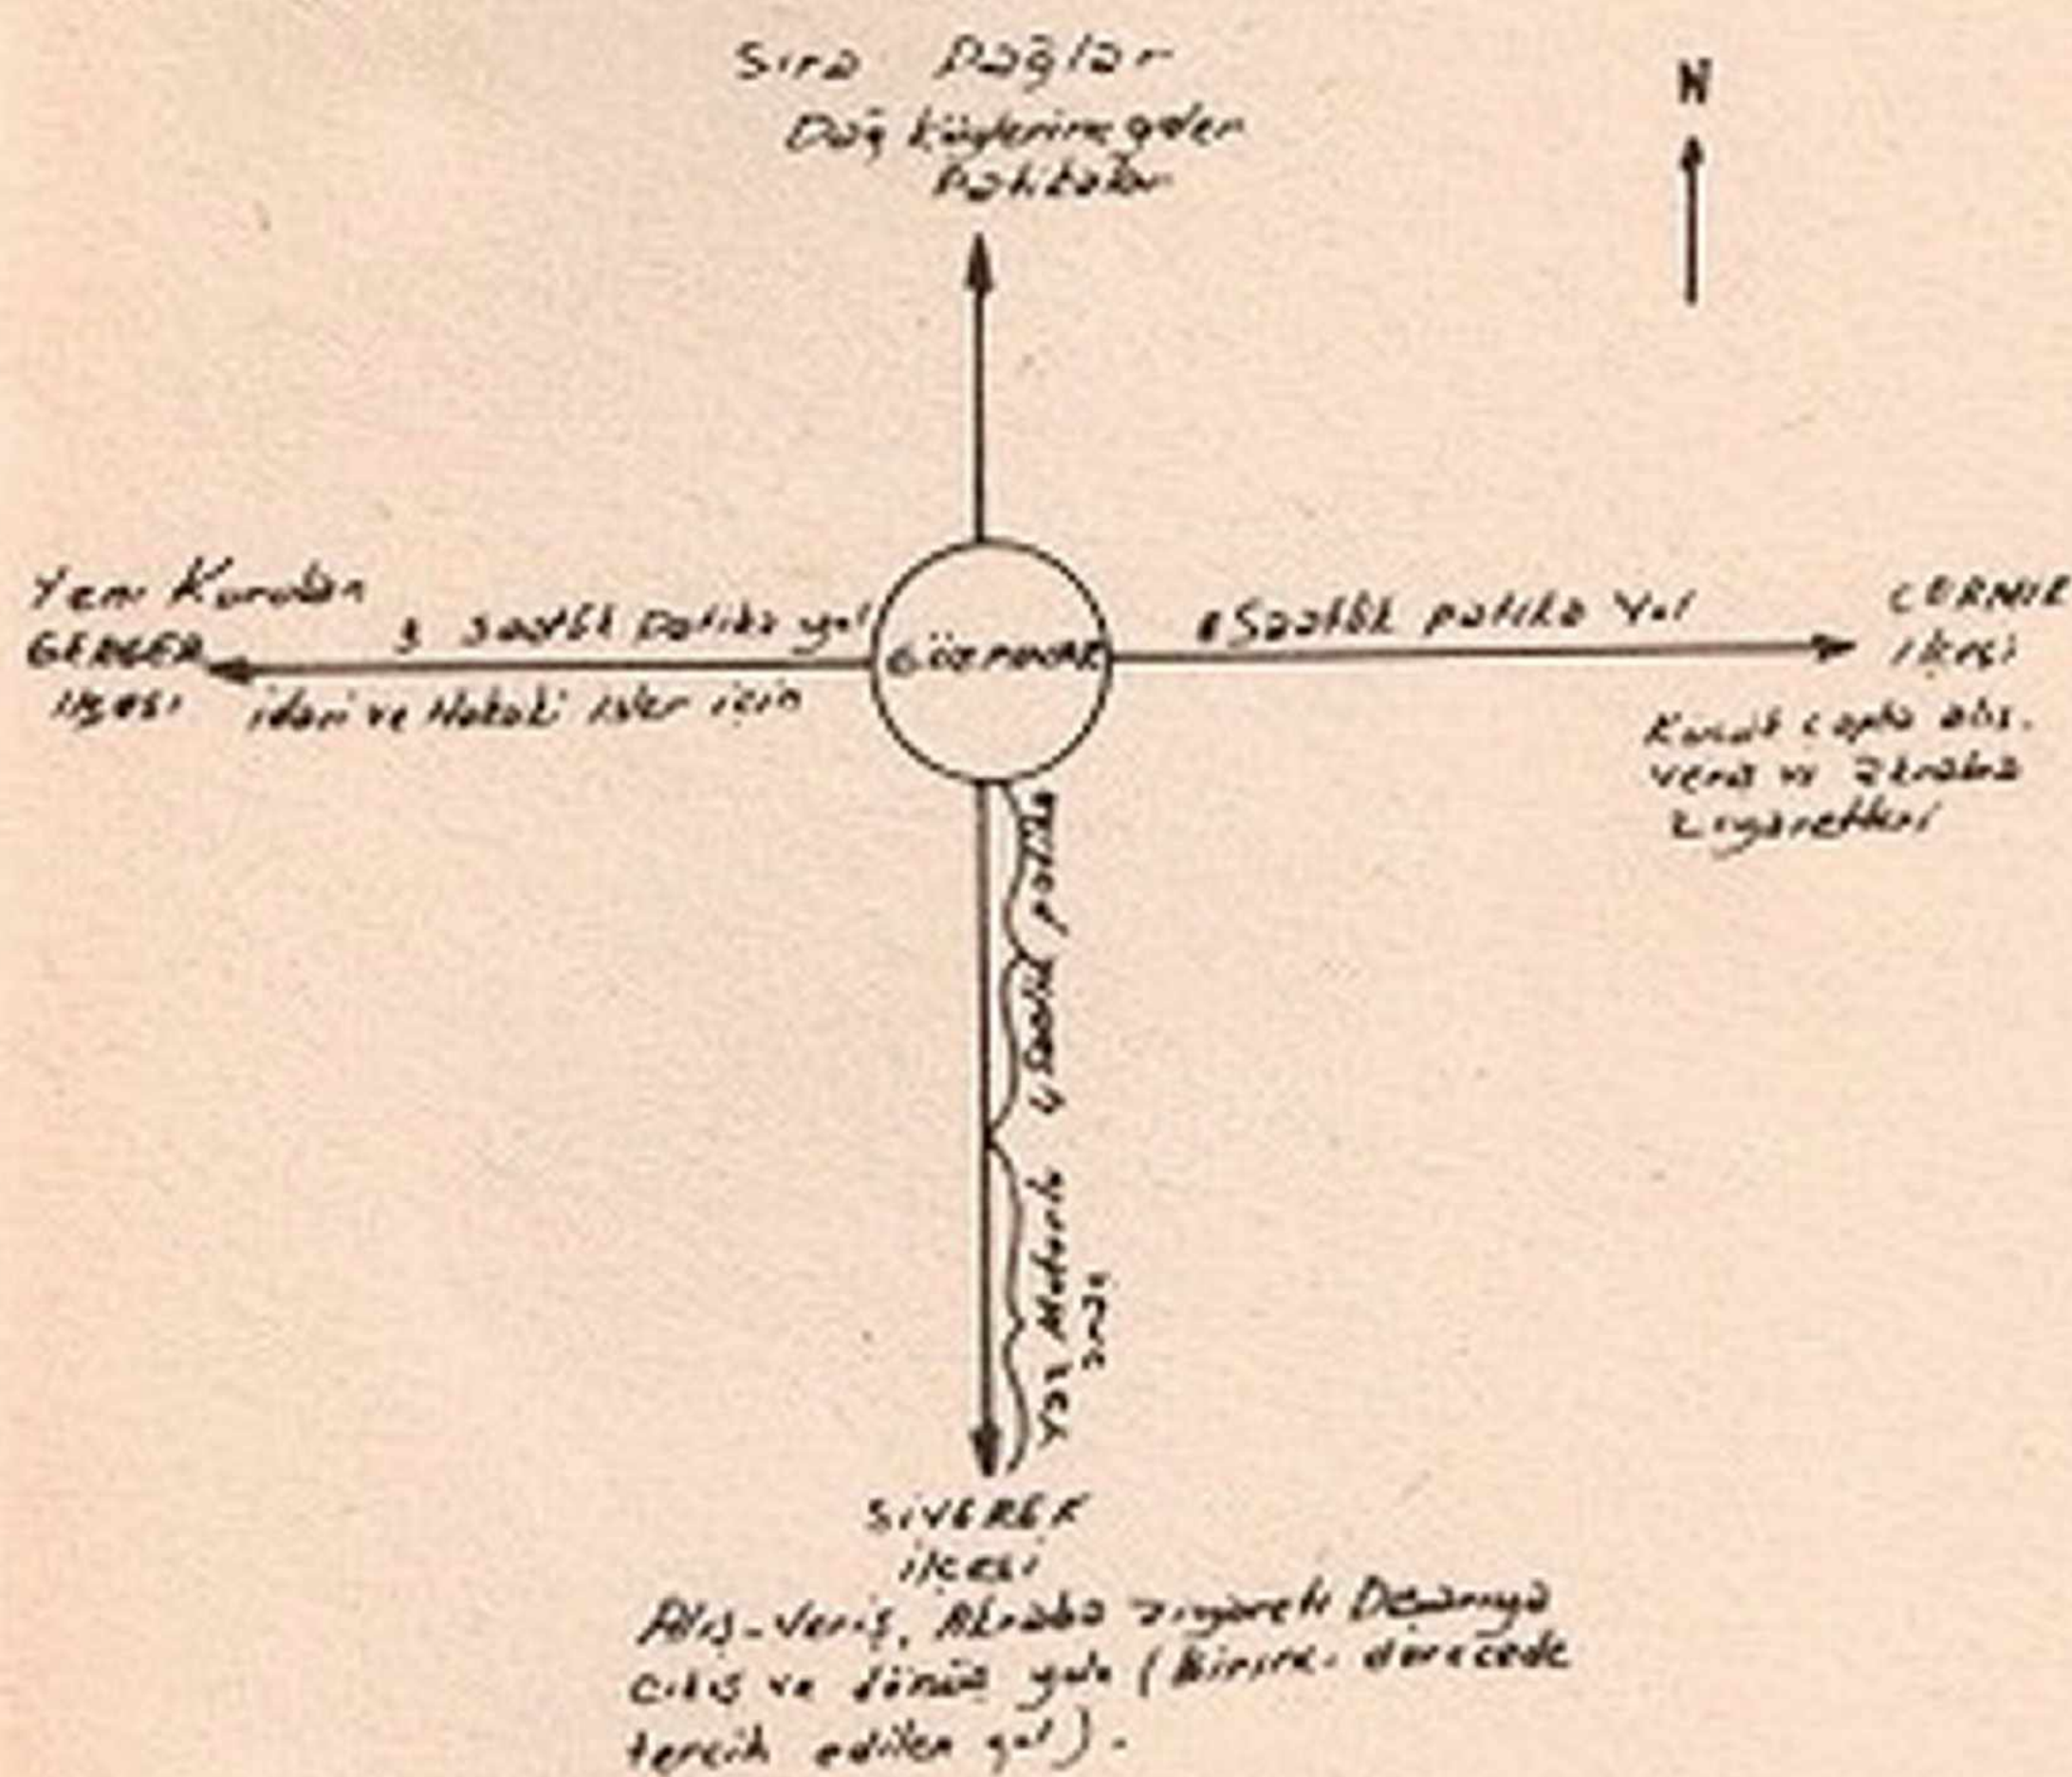 Sıra Dağlar
Dağ köylerine giden
Patikalar
N
Yeni Kurulan
GERGER
ilçesi
3 saatlik patika yol
idari ve Hukuki işler için
GÖZPINAR
8 Saatlik patika Yol
ÇERMİK
ilçesi
Küçük çapta alış.
veriş ve akraba
ziyaretleri
4 saatlik patika
Yaz Motorlu
araç
SİVEREK
ilçesi
Alış-Veriş, Akraba ziyareti
çıkış ve dönüş yolu (Birinci derecede
tercih edilen yol).